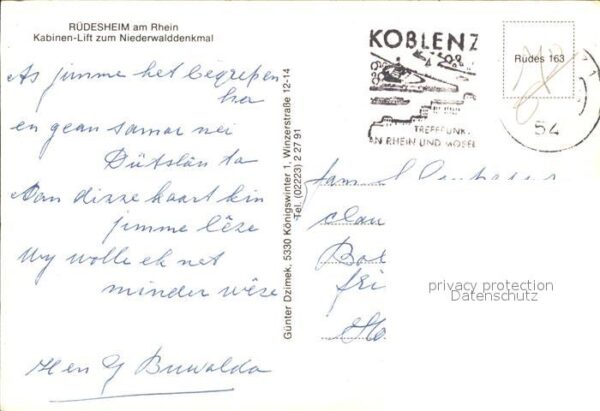 RÜDESHEIM am Rhein
Kabinen-Lift zum Niederwalddenkmal
As jimme het begrepen
ha
en gean samar nei
Dútslân ta
Dan disse kaart kin
jimme lêze
Wy wolle ek net
minder wêze
H en G Buwalda
Günter Dzimek, 5330 Königswinter 1, Winzerstraße 12-14
Tel. (02223) 2 27 91
KOBLENZ
TREFFPUNKT
AN RHEIN UND MOSEL
Rüdes 163
54
Fam
privacy protection
Datenschutz